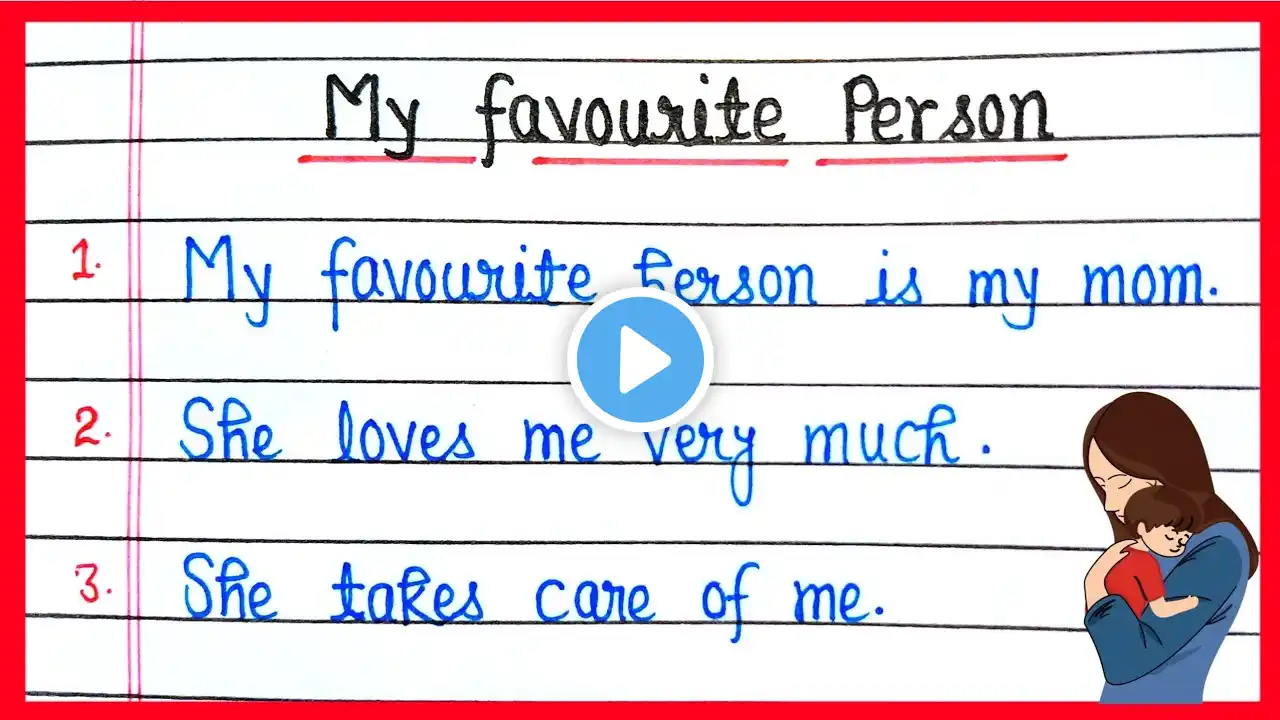 My favourite Person
1. My favourite Person is my mom.
2. She loves me very much.
3. She takes care of me.